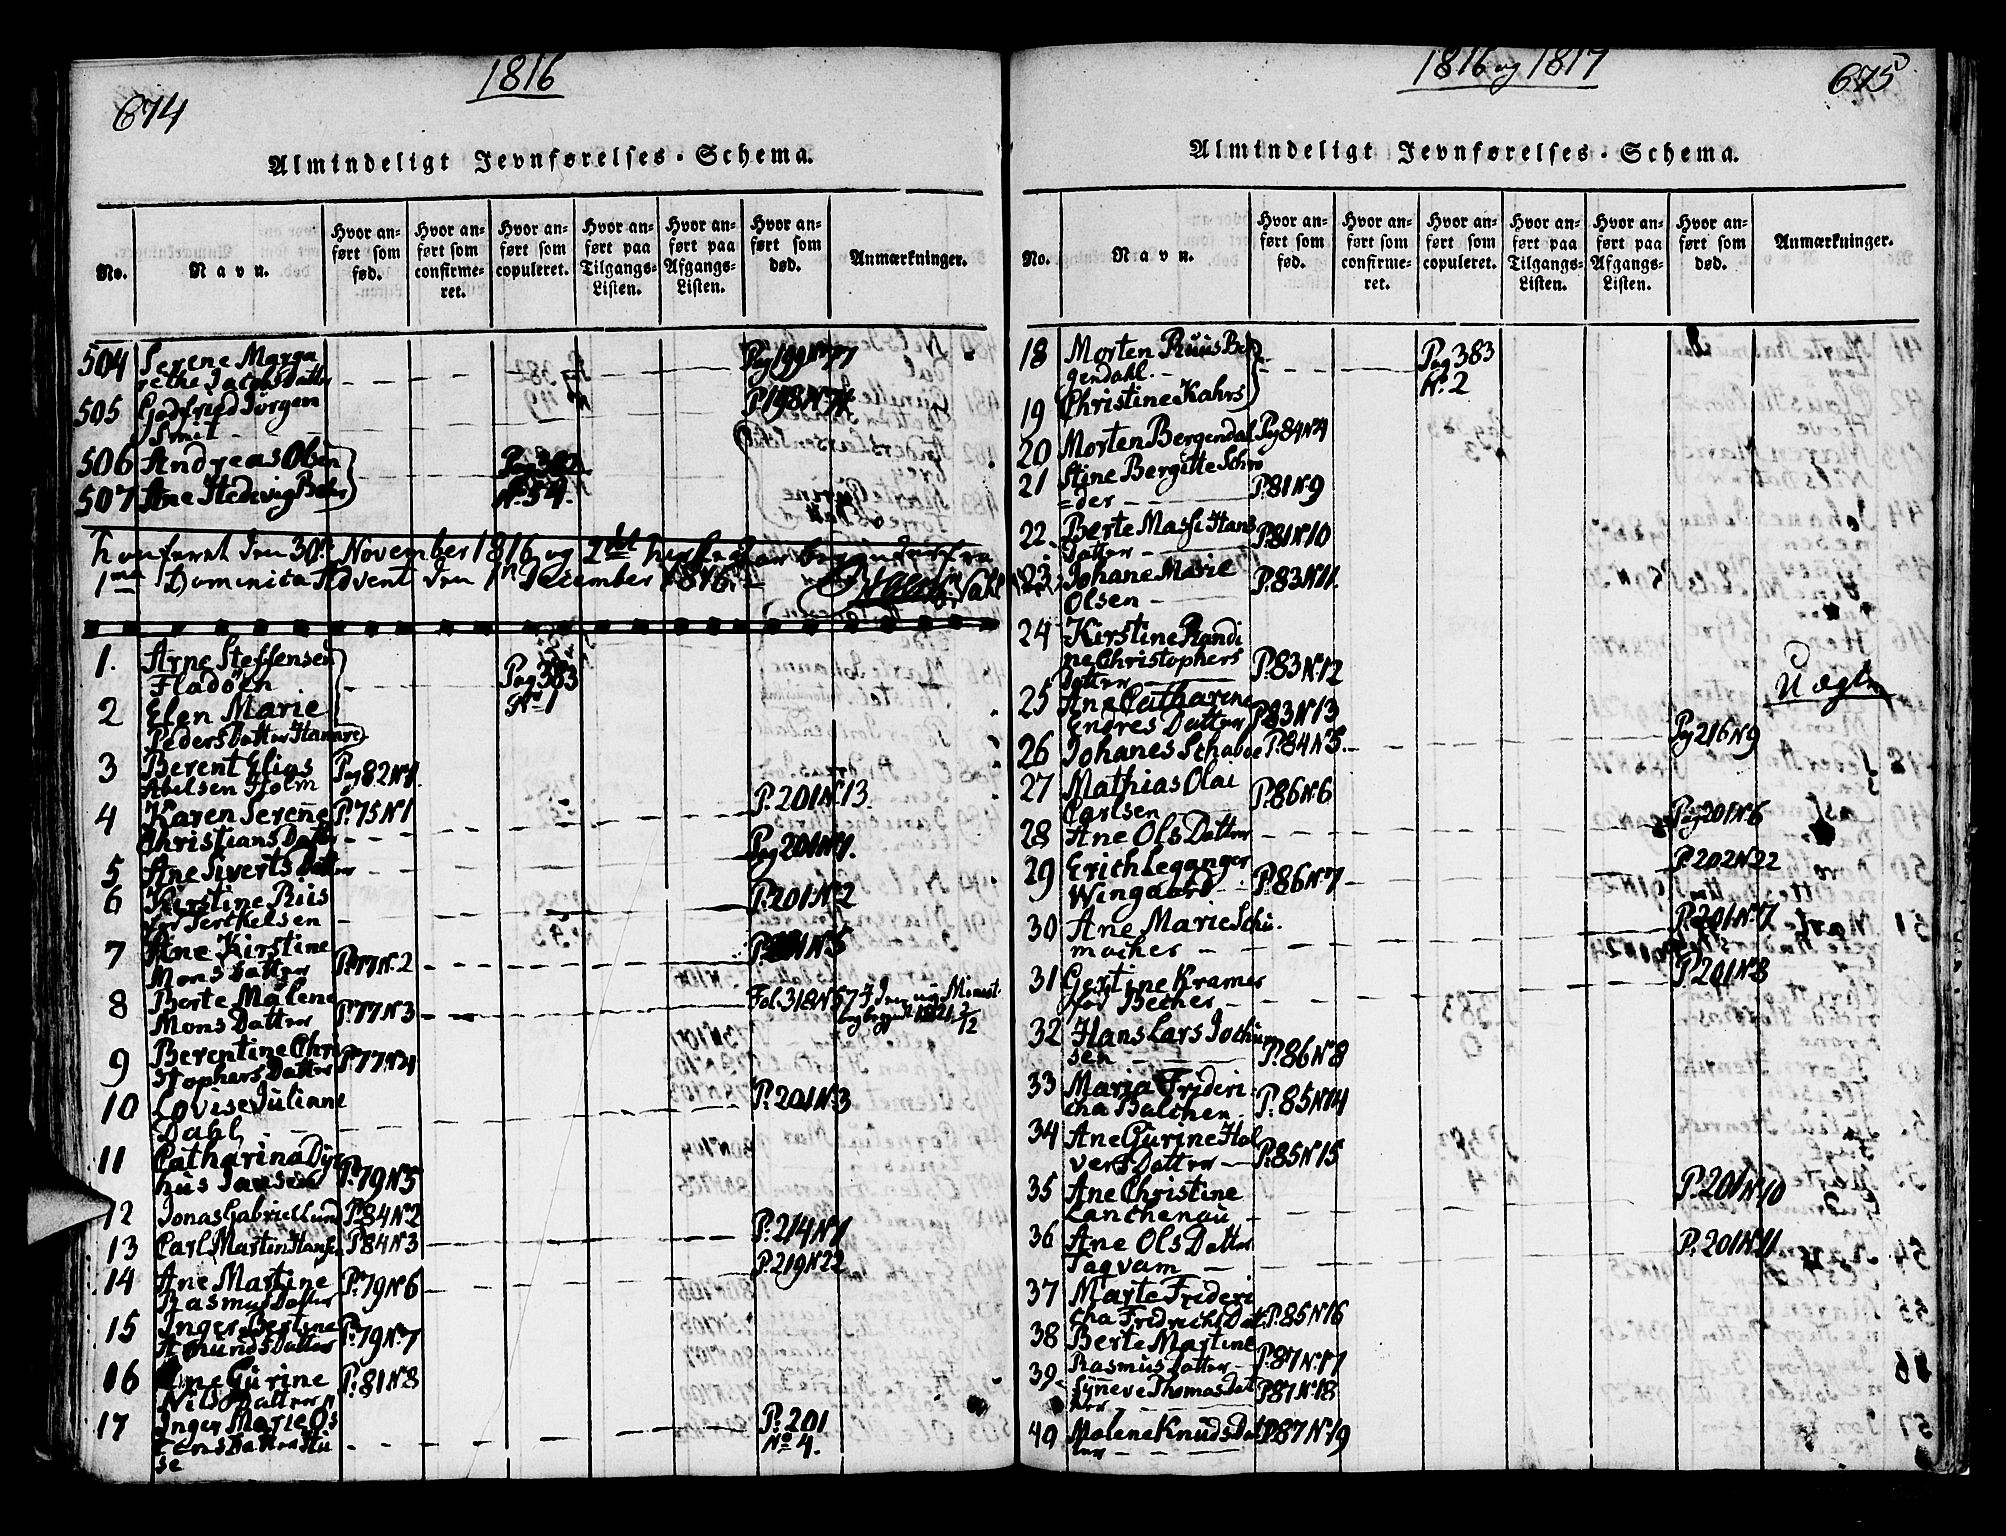 674
1816
Almindeligt Jevnførelses-Schema.
No.
Navn.
Hvor anført som fød.
Hvor anført som confirmeret.
Hvor anført som copuleret.
Hvor anført paa Tilgangs-Listen.
Hvor anført paa Afgangs-Listen.
Hvor anført som død.
Anmærkninger.
504 Serene Marga Pag 199 No 77
rethe Jacobs Datter
505 Godfried Jörgen P 198 No 74
Smit
506 Andreas Olsen Pag 382
507 Ane Hedevig Behr No 54.
Konferet den 30te November 1816 og 2det
1ma Dominica Advent den 1n December 1816.
1. Arne Steffensen Pag 383
Fladöen No 1
2 Elen Marie
Peders Datter Hamre
3 Berent Elias Pag 82 No 1.
Abelsen Holm P. 201 No 13.
4 Karen Serene P. 75 No 1
Christians Datter Pag 201 No 1.
5 Ane Siverts Datter
6 Kirstine Riis P. 201 No 2
for Terckelsen
7 Ane Kirstine P. 77 No 2 P. 201 No 5
Mons Datter
8 Berte Malene P. 77 No 3 Fol. 318 No 57
Mons Datter
9 Berentine Chri P. 77 No 4
stophers Datter
10 Lovise Juliane P. 201 No 3
Dahl
11 Catharina Dyre P. 79 No 5
hus Jansen
12 Jonas Gabriel Lund P. 84 No 2
13 Carl Martin Hansen P. 84 No 3 P. 214 No 1
14 Ane Martine P. 79 No 6 P. 219 No 22
Rasmus Datter
15 Inger Bertine P. 79 No 7
Amunds Datter
16 Ane Gurine P. 81 No 8
Nils Datter
17 Inger Marie Os P. 201
tens Datter Hu No 4.
se
1816 og 1817
675
Almindeligt Jevnførelses-Schema.
No.
Navn.
Hvor anført som fød.
Hvor anført som confirmeret.
Hvor anført som copuleret.
Hvor anført paa Tilgangs-Listen.
Hvor anført paa Afgangs-Listen.
Hvor anført som død.
Anmærkninger.
18 Morten Ruus Ber Pag 383
gendahl. No. 2
19 Christine Kahrs
20 Morten Bergendal Pag 84 No 4
21 Stine Bergitte Schrö
=der P. 81 No 9
22 Berte Massi Hans P. 81 No 10
Datter
23 Johane Marie P. 83 No 11.
Olsen
24 Kirstine Randi
ne Christophers P. 83 No 12
Datter
25 Ane Catharene
Endres Datter P. 83 No 13
26 Johanes Schaboe P. 84 No 5. Pag 216 No 9
27 Mathias Olai P. 86 No 6
Carlsen
28 Ane Ols Datter Pag 201 No 6
29 Erich Leganger P. 86 No 7 P. 202 No 22
Wengaard
30 Ane Marie Schu P. 201 No 7
macher
31 Gestine Kramer P. 201 No 8
for Becher
32 Hans Lars Jochum
sen P. 86 No 8
33 Maria Frideri P. 85 No 14
cha Balchen
34 Ane Gurine Hal
vers Datter P. 85 No 15
35 Ane Christine P. 201 No 10
Lanthenau
36 Ane Ols Datter P. 201 No 11
Taqvam
37 Marte Frideri
cha Fridrichs Dat. P. 85 No 16
38 Berte Martine
Rasmus Datter P. 87 No 17
39 Syneve Thomas Dat P. 87 No 18
ter
40 Malene Knuds Dat P. 87 No 19
ter